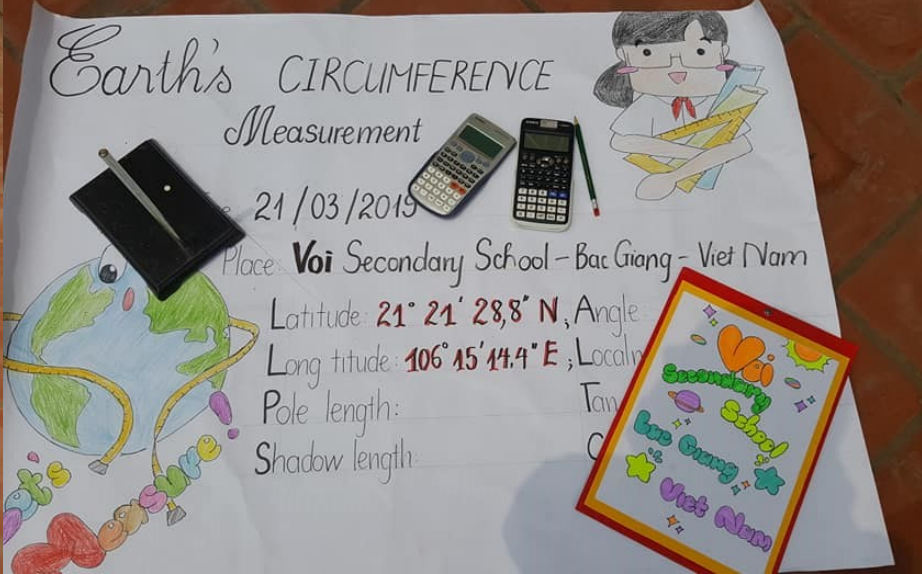 Earth's CIRCUMFERENCE
Measurement
21/03/2019
Place: Voi Secondary School - Bac Giang - Viet Nam
Latitude: 21° 21' 28,8" N; Angle:
Long titude: 106° 15' 14,4" E; Local
Pole length:
Tan
Shadow length:
Let's measure
Voi
Secondary
School
Bac Giang
Viet Nam